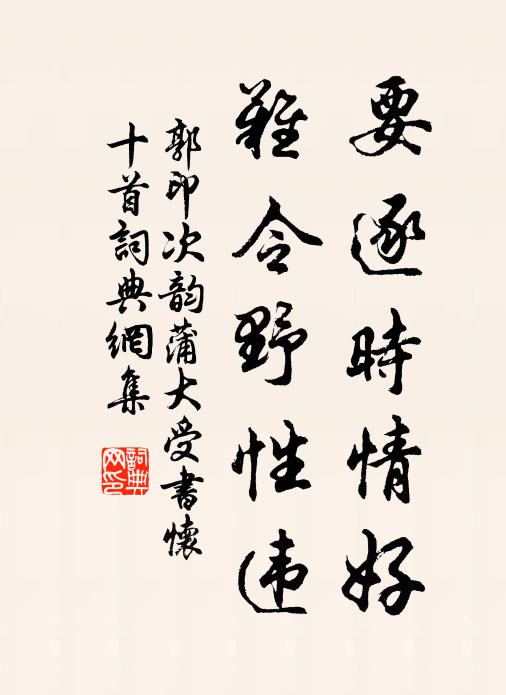 要逐時情好
難令野性违
郭印次韵蒲大受書懷
十首詞典網集
詞典网印